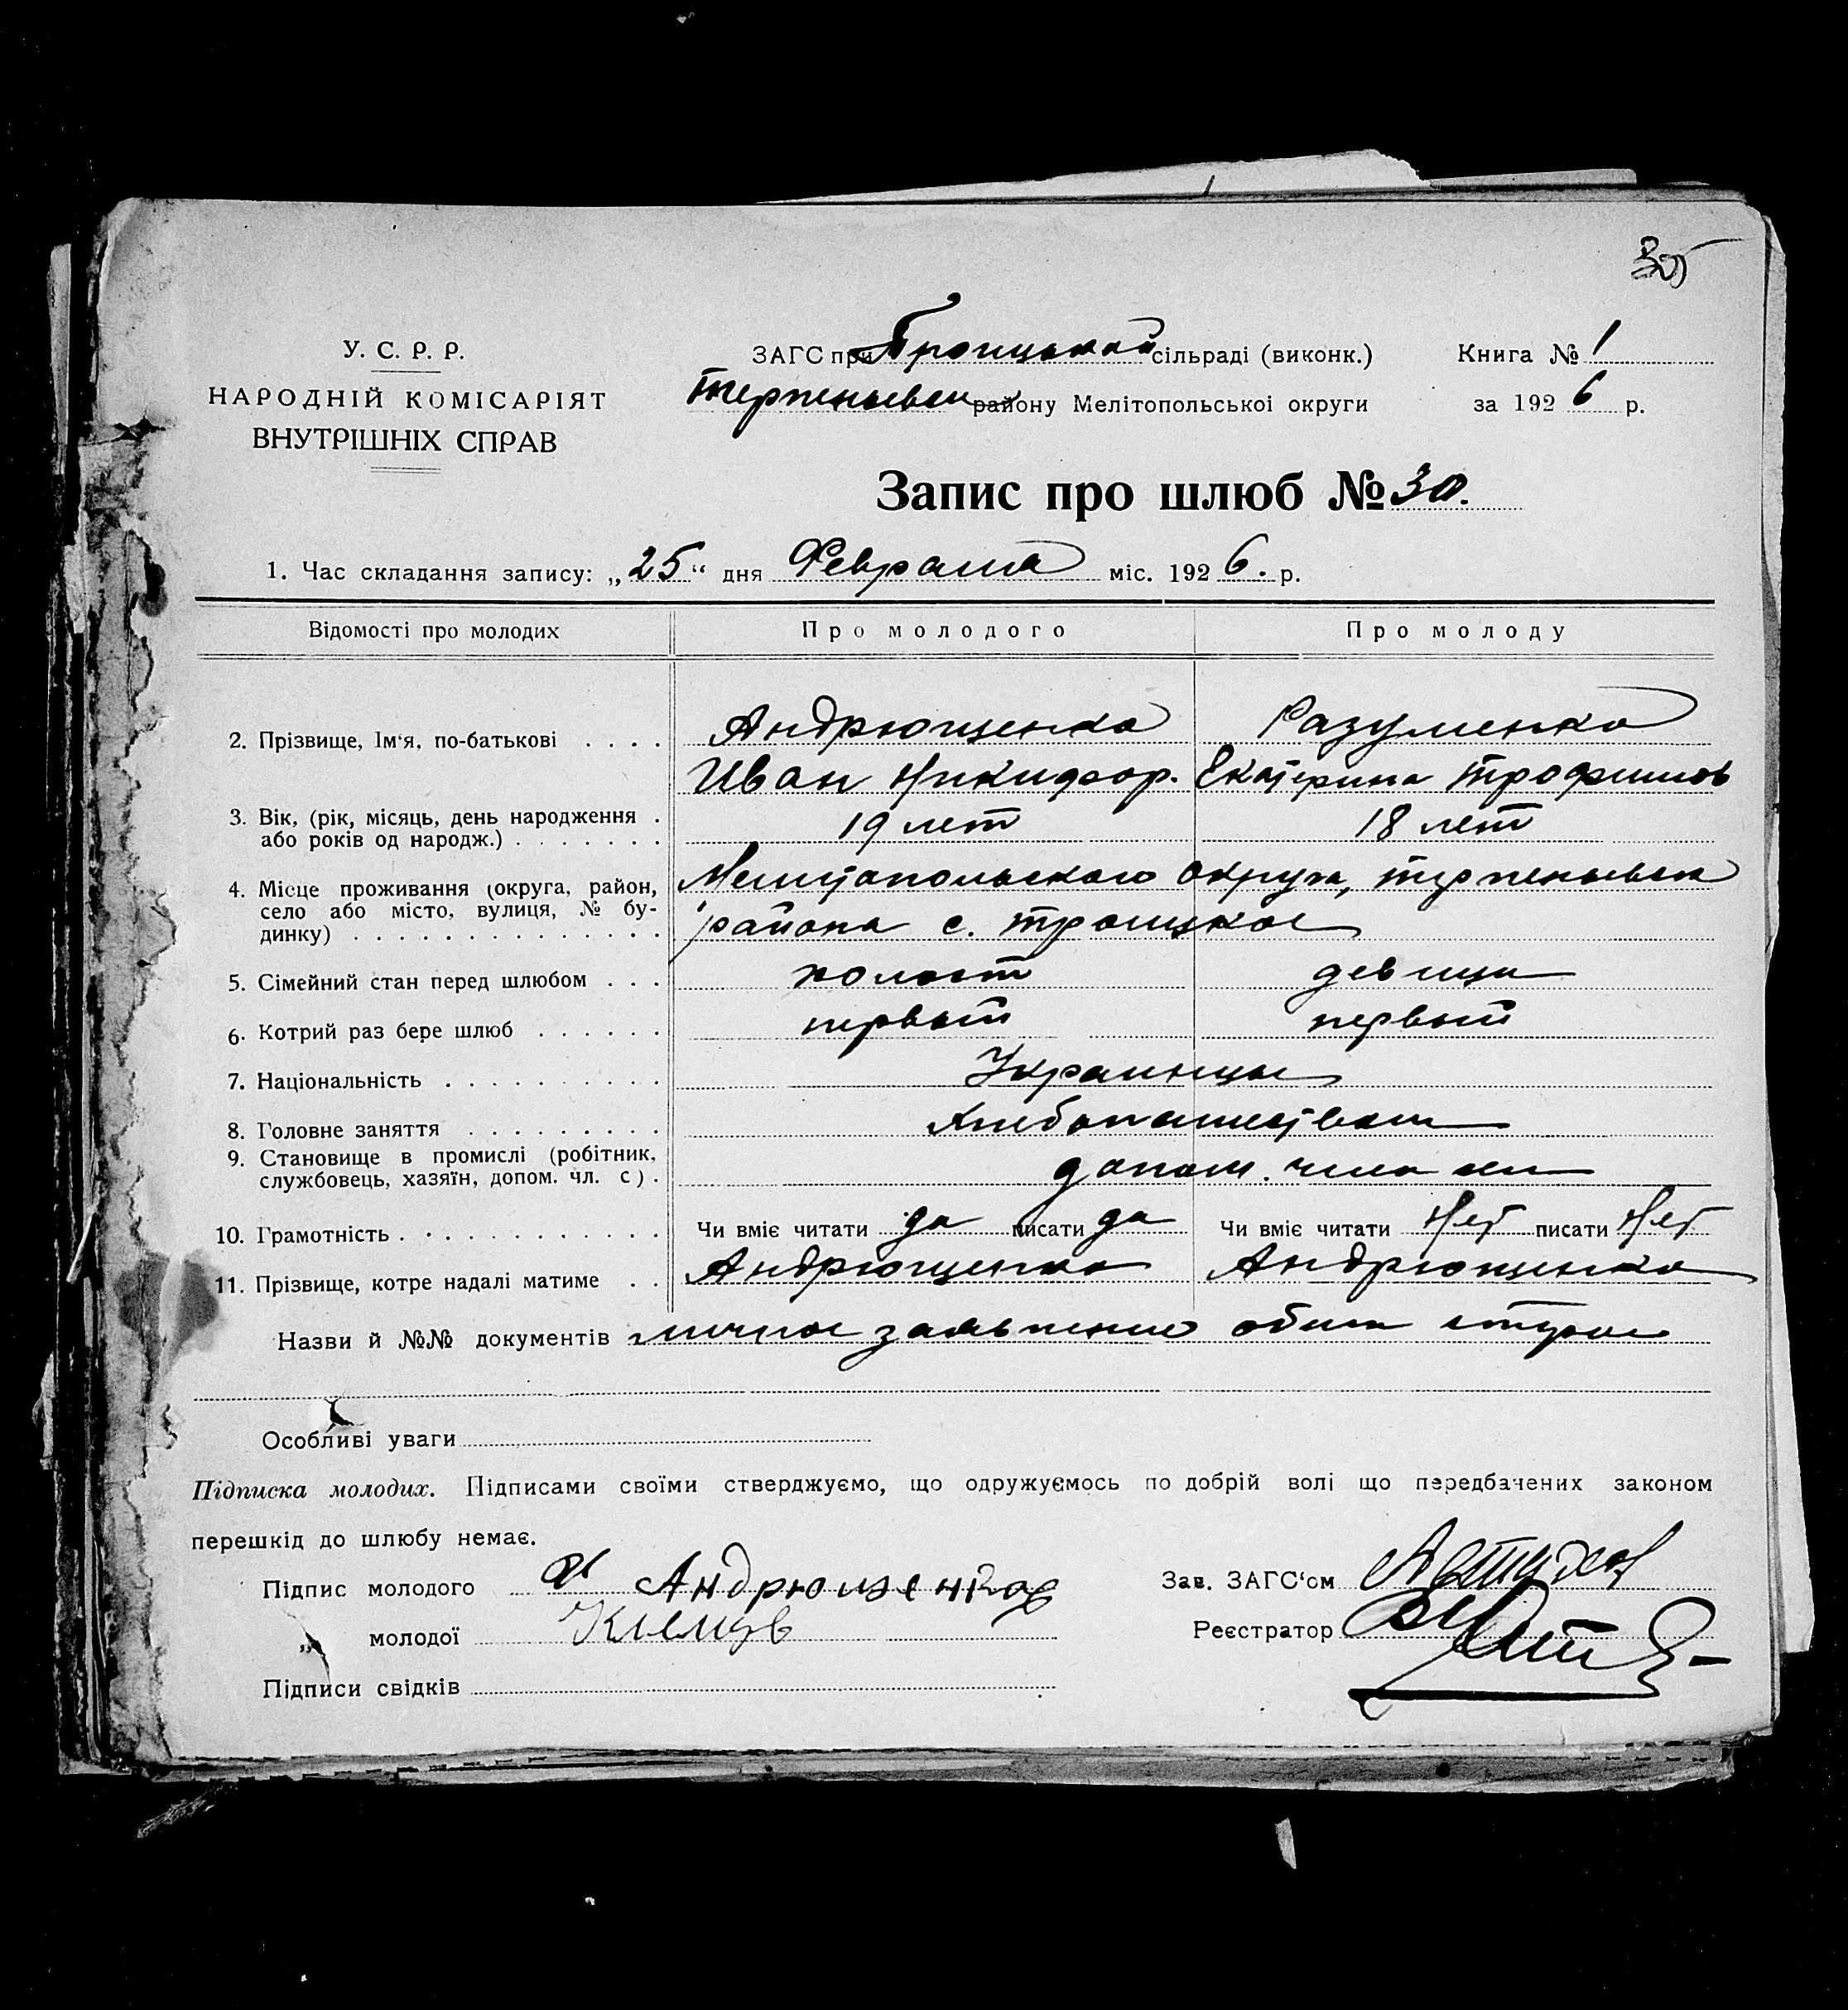 У. С. Р. Р.
НАРОДНІЙ КОМІСАРІЯТ
ВНУТРІШНІХ СПРАВ
ЗАГС при Троицькой сільраді (виконк.) Книга № 1
Терпеньевск району Мелітопольської округи за 1926 р.
Запис про шлюб № 30.
1. Час складання запису: „25“ дня Февраля міс. 1926. р.
Відомості про молодих Про молодого Про молоду
2. Прізвище, Ім‘я, по-батькові . . . . Андрющенко Разуменко
Иван Никифор. Екатерина Трофимов
3. Вік, (рік, місяць, день народження . 19 лет 18 лет
або років од народж.) . . . . . . .
4. Місце проживання (округа, район, Мелитопольского округа, терпеньевск
село або місто, вулиця, № бу- района с. троицкое
динку) . . . . . . . . . . . . . .
5. Сімейний стан перед шлюбом . . . холост девица
6. Котрий раз бере шлюб . . . . . . первый первый
7. Національність . . . . . . . . . . Украинцы
8. Головне заняття . . . . . . . . . Хлебопашеством
9. Становище в промислі (робітник, допом. члена
службовець, хазяїн, допом. чл. с) .
10. Грамотність . . . . . . . . . . . . Чи вміє читати да писати да Чи вміє читати Нет писати Нет
11. Прізвище, котре надалі матиме . . Андрющенко Андрющенко
Назви й №№ документів личное заявление обеих сторон
Особливі уваги
Підписка молодих. Підписами своїми стверджуємо, що одружуємось по добрій волі що передбачених законом
перешкід до шлюбу немає.
Підпис молодого Андрющенко Зав. ЗАГС‘ом
„ молодої Реєстратор
Підписи свідків